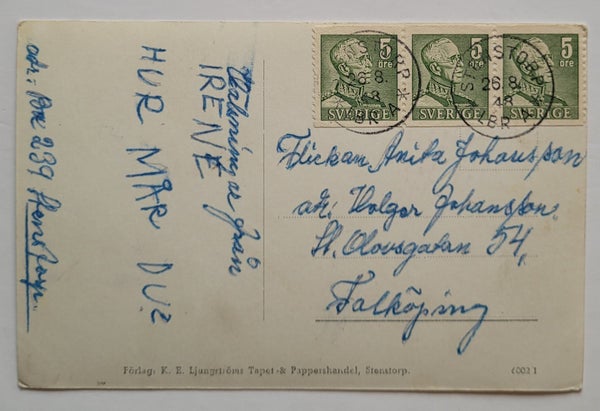 5
öre
SVERIGE
5
öre
SVERIGE
5
öre
SVERIGE
STENSTORP
26.8.
48
BR A
STENSTORP
26.8.
48
BR A
Hälsningar från
IRENE
HUR MÅR DU?
adr: Box 239 Stenstorp.
Flickan Anita Johansson
adr: Holger Johansson.
St. Olovsgatan 54,
Falköping
Förlag: K. E. Ljungströms Tapet- & Pappershandel, Stenstorp.
6002 1